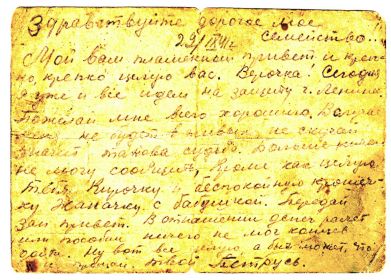 Здравствуйте дорогое мое
семейство...
22/IX 41 г.
Мой вам пламенный привет и крепко
крепко целую вас. Верочка! Сегодня
я уже и все идем на защиту г. Ленина
Пожелай мне всего хорошего,
не будет в живых, не скучай
значит такова судьба. Больше ничего
не могу сообщить, кроме как целую
тебя, Верочку и беспокойную
Жаночку с бабушкой. Передай
Зан привет. В отношении денег расчет
или пособия ничего не мог
Ну вот все, целую а быть может, что
и твой Петрусь.